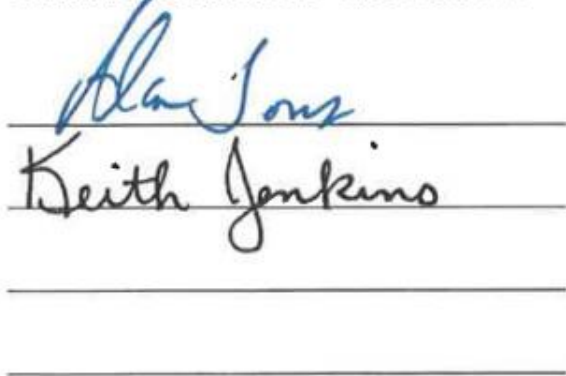 Alan Jones
Keith Jenkins